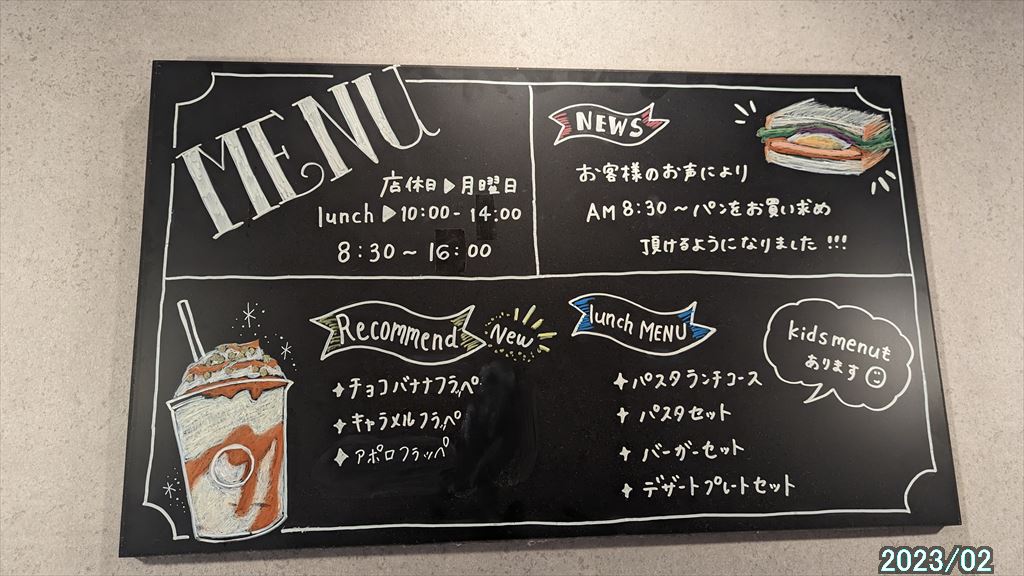 MENU
店休日▶月曜日
lunch▶10:00-14:00
8:30~16:00
NEWS
お客様のお声により
AM 8:30 ~パンをお買い求め
頂けるようになりました!!!
Recommend New
✦チョコバナナフラッペ
✦キャラメルフラッペ
✦アポロフラッペ
lunch MENU
✦パスタランチコース
✦パスタセット
✦バーガーセット
✦デザートプレートセット
kidsmenuも
あります☺
2023/02